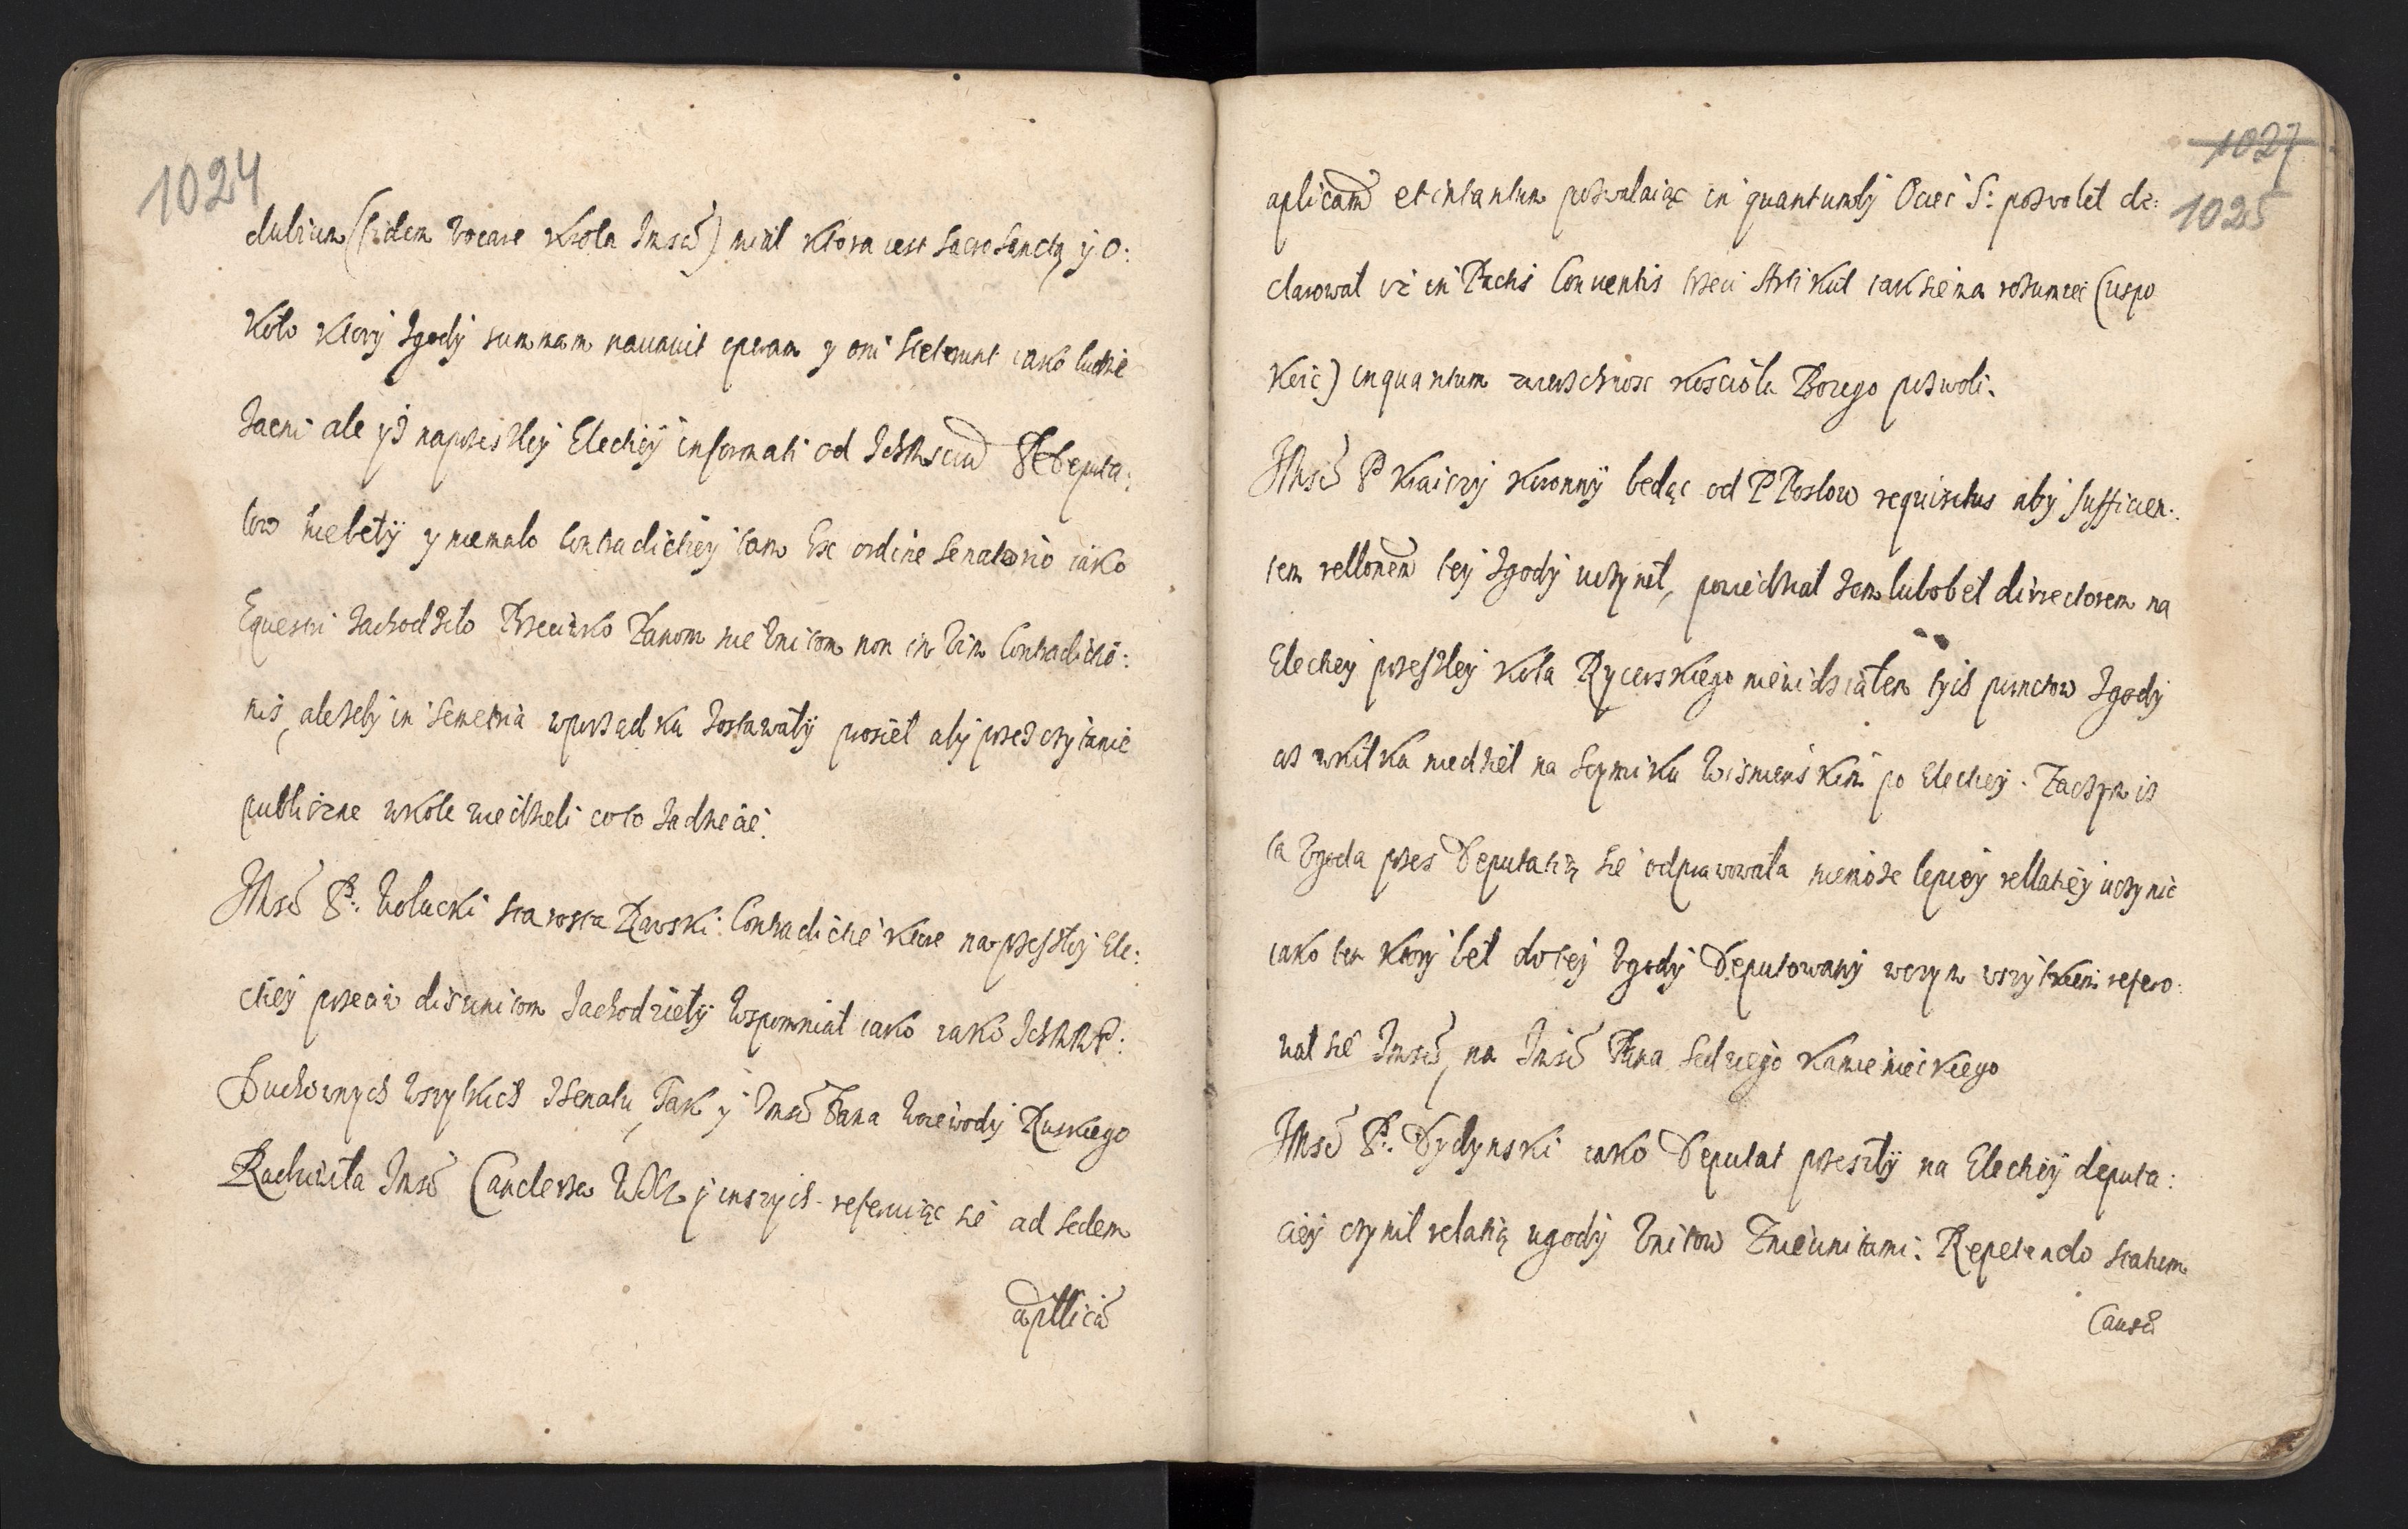 1024
dubium (fidem vocare Krola Jmsci) miał ktora iest sacrosancta y o:
koło ktory zgody summam navavit operam y oni steterunt iako ludzie
zacni ale yż na przeszłey Elechiey informati od Ichmsciow PP Deputa:
tow niebeły y niemało contradichiey tam Ex ordine Senatorio iako
Equestri zachodzeło Przeciwko Panom nie Vnitom non in vim Contradictio:
nis, ale żeby in Semetria w porządku zostawały prosieł aby przez czytanie
publiczne w kole wiedzieli co to za dzieie.
JMsc P: Wolucki starosta Rawski. Contradictie ktore na przeszłej Ele:
ctiey przeciw disunitom zachodzieły wspomniał iako iako IchMM PP:
Duchownych wszytkich z Senatu, Tak y Jmsci Pana Woiewody Ruskiego
Rachwała Jmsci Canclerza WXL y inszych referuiąc się ad sedem
apllicā
1027
1025
aplicam et intantum pozwalaiąc in quantumby Ociec S: pozwoleł de:
clarował iż in Pactis Conventis trzeci Artikuł tak się ma rozumiec (uspo
koic) inquantum zwierzchnosc koscioła Bozego pozwoli.
JMsc P Kraiczy Koronny będąc od PPosłow requisitus aby sufficien:
tem rellonem tey zgody uczynieł, powiedział żem lubo beł directorem na
Elechey przeszłey Koła Rycerskiego niewidziałem tych punctow zgody
aż w kilka niedziel na Seymiku Wismenskim po Elechey. Zaczym iż
ta Zgoda przez Deputatią się odprawowała niemoże lepiey rellatiey uczynic
iako ten ktory beł do tey Zgody Deputowany w czym wszytkiem refero:
wał się Jmsc, na Jmsc Pana Sedziego Kamienieckiego
JMsc P: Dydynski iako Deputat przeszły na Elechiey deputa:
ciey czynił relatią ugody Vnitow z nieunitami. Repetendo statum
Causæ